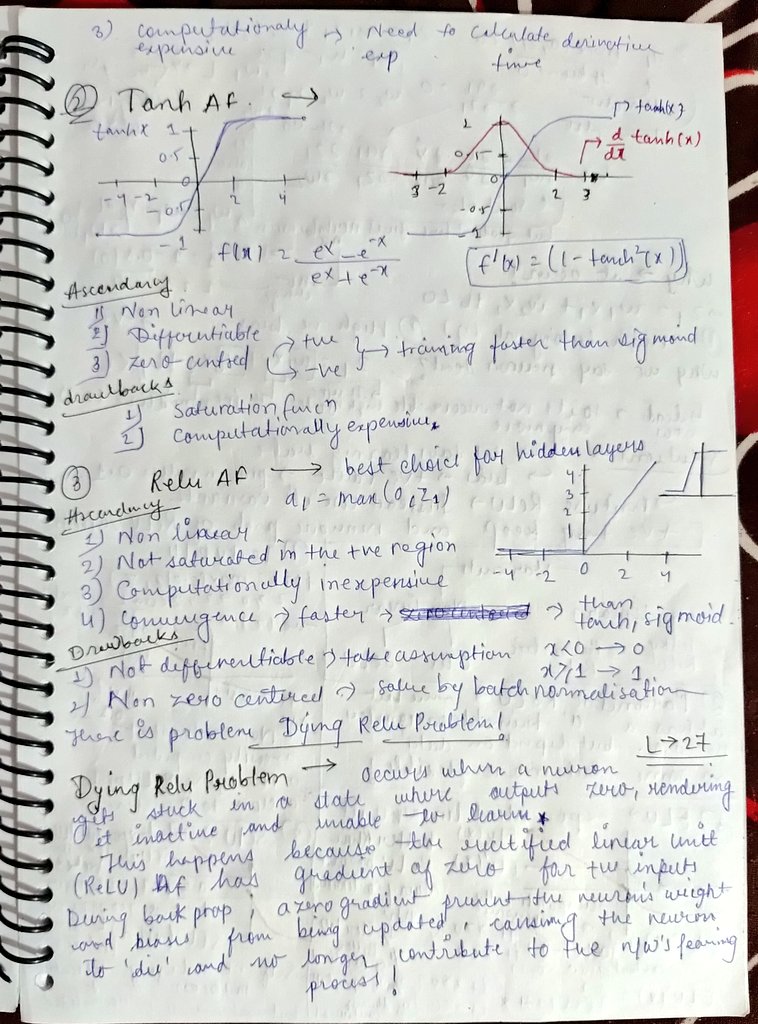 3) Computationaly → Need to calculate derivative
expensive exp time
② Tanh AF. →
tanhx 1 0.5 0 -4 -2 2 4 -0.5 -1
1 0.5 0 -3 -2 2 3 -0.5 -1 → tanh(x) → d/dx tanh(x)
f(x) = (e^x - e^-x)/(e^x + e^-x) f'(x) = (1 - tanh²(x))
Ascendancy
1) Non linear
2) Differentiable
3) zero centred → +ve → -ve } → training faster than sigmoid
drawbacks
1) Saturation funcn
2) Computationally expensive.
③ Relu AF → best choice for hidden layers
a1 = max(0, z1)
4 3 2 1 -4 -2 0 2 4
Ascendancy
1) Non linear
2) Not saturated in the +ve region
3) Computationally inexpensive
4) Convergence → faster → zero centered → than tanh, sigmoid.
Drawbacks
1) Not differentiable → take assumption x<0 → 0
x≥1 → 1
2) Non zero centered → solve by batch normalisation
There is problem Dying Relu Problem!
L → 27
Dying Relu Problem → occurs when a neuron
gets stuck in a state where outputs zero, rendering
it inactive and unable to learn.
This happens because the rectified linear unit
(ReLU) AF has gradient of zero for +ve inputs
During back prop, a zero gradient prevent the neuron's weight
and biases from being updated, causing the neuron
to 'die' and no longer contribute to the n/w's learing
process!